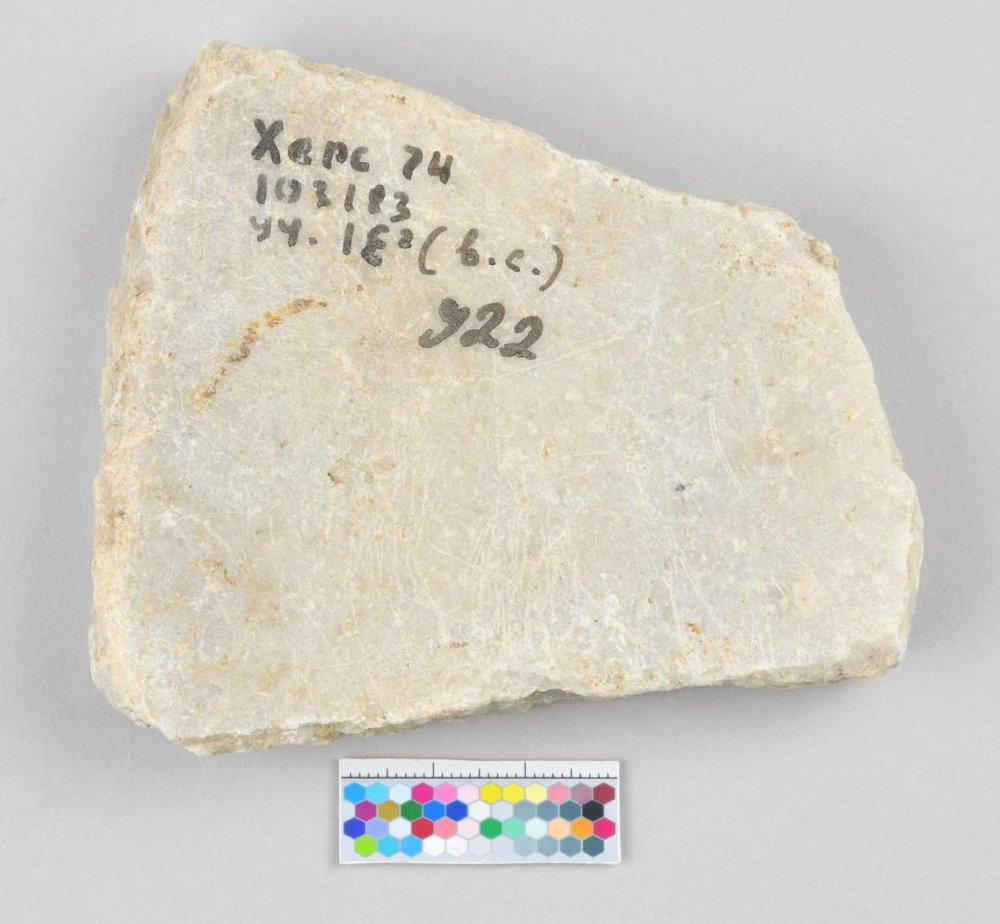 Херс 74
103183
уч. 1Б² (в.с.)
922